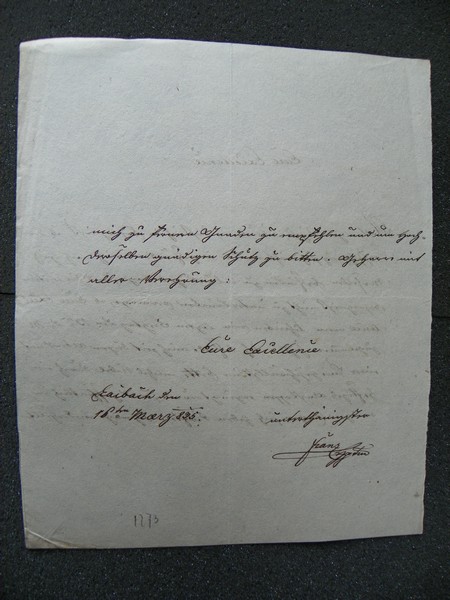 mich zu Ihren Gnaden zu empfehlen und um Hoch-
deroselben gnädigen Schutz zu bitten. Geharre mit
aller Verehrung:
Eure Excellence
Laibach den
16ten Maerz 135.
unterthänigster
Franz
1273